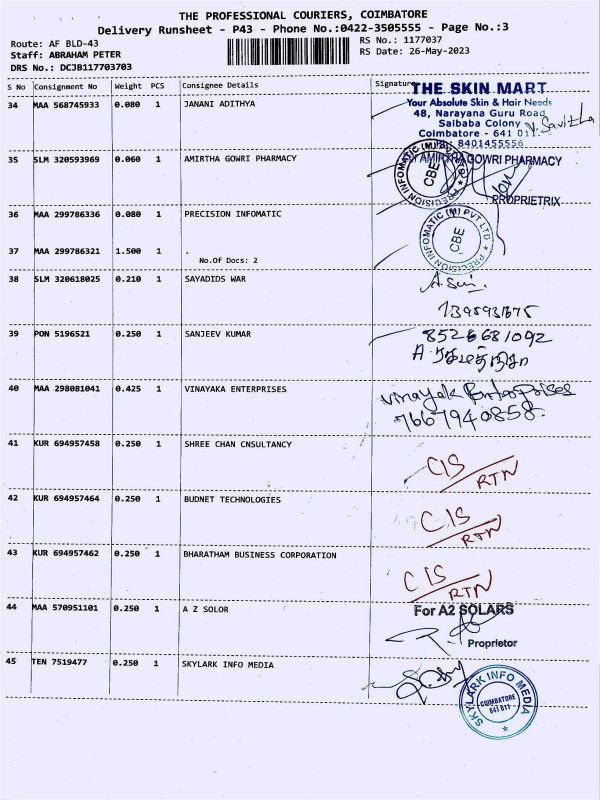 THE PROFESSIONAL COURIERS, COIMBATORE
Delivery Runsheet - P43 - Phone No.:0422-3505555 - Page No.:3
Route: AF BLD-43 RS No.: 1177037
Staff: ABRAHAM PETER RS Date: 26-May-2023
DRS No.: DCJB117703703
S No Consignment No Weight PCS Consignee Details Signature
34 MAA 568745933 0.080 1 JANANI ADITHYA
THE SKIN MART
Your Absolute Skin & Hair Needs
48, Narayana Guru Road
Saibaba Colony
Coimbatore - 641 011.
8401455556
V. Savitha
35 SLM 320593969 0.060 1 AMIRTHA GOWRI PHARMACY
AMIRTHA GOWRI PHARMACY
PROPRIETRIX
PRECISION INFOMATIC (M) PVT LTD
CBE
36 MAA 299786336 0.080 1 PRECISION INFOMATIC
PRECISION INFOMATIC (M) PVT LTD
CBE
37 MAA 299786321 1.500 1 .
No.Of Docs: 2
38 SLM 320618025 0.210 1 SAYADIDS WAR
39 PON 5196521 0.250 1 SANJEEV KUMAR
8526681092
40 MAA 298081041 0.425 1 VINAYAKA ENTERPRISES
Vinayak Enterprises
7667940858.
41 KUR 694957458 0.250 1 SHREE CHAN CNSULTANCY
C/S
RTN
42 KUR 694957464 0.250 1 BUDNET TECHNOLOGIES
C/S
RTN
43 KUR 694957462 0.250 1 BHARATHAM BUSINESS CORPORATION
C/S
RTN
44 MAA 570951101 0.250 1 A Z SOLOR
For A2 SOLARS
Proprietor
45 TEN 7519477 0.250 1 SKYLARK INFO MEDIA
SKYLARK INFO MEDIA
COIMBATORE
641 011